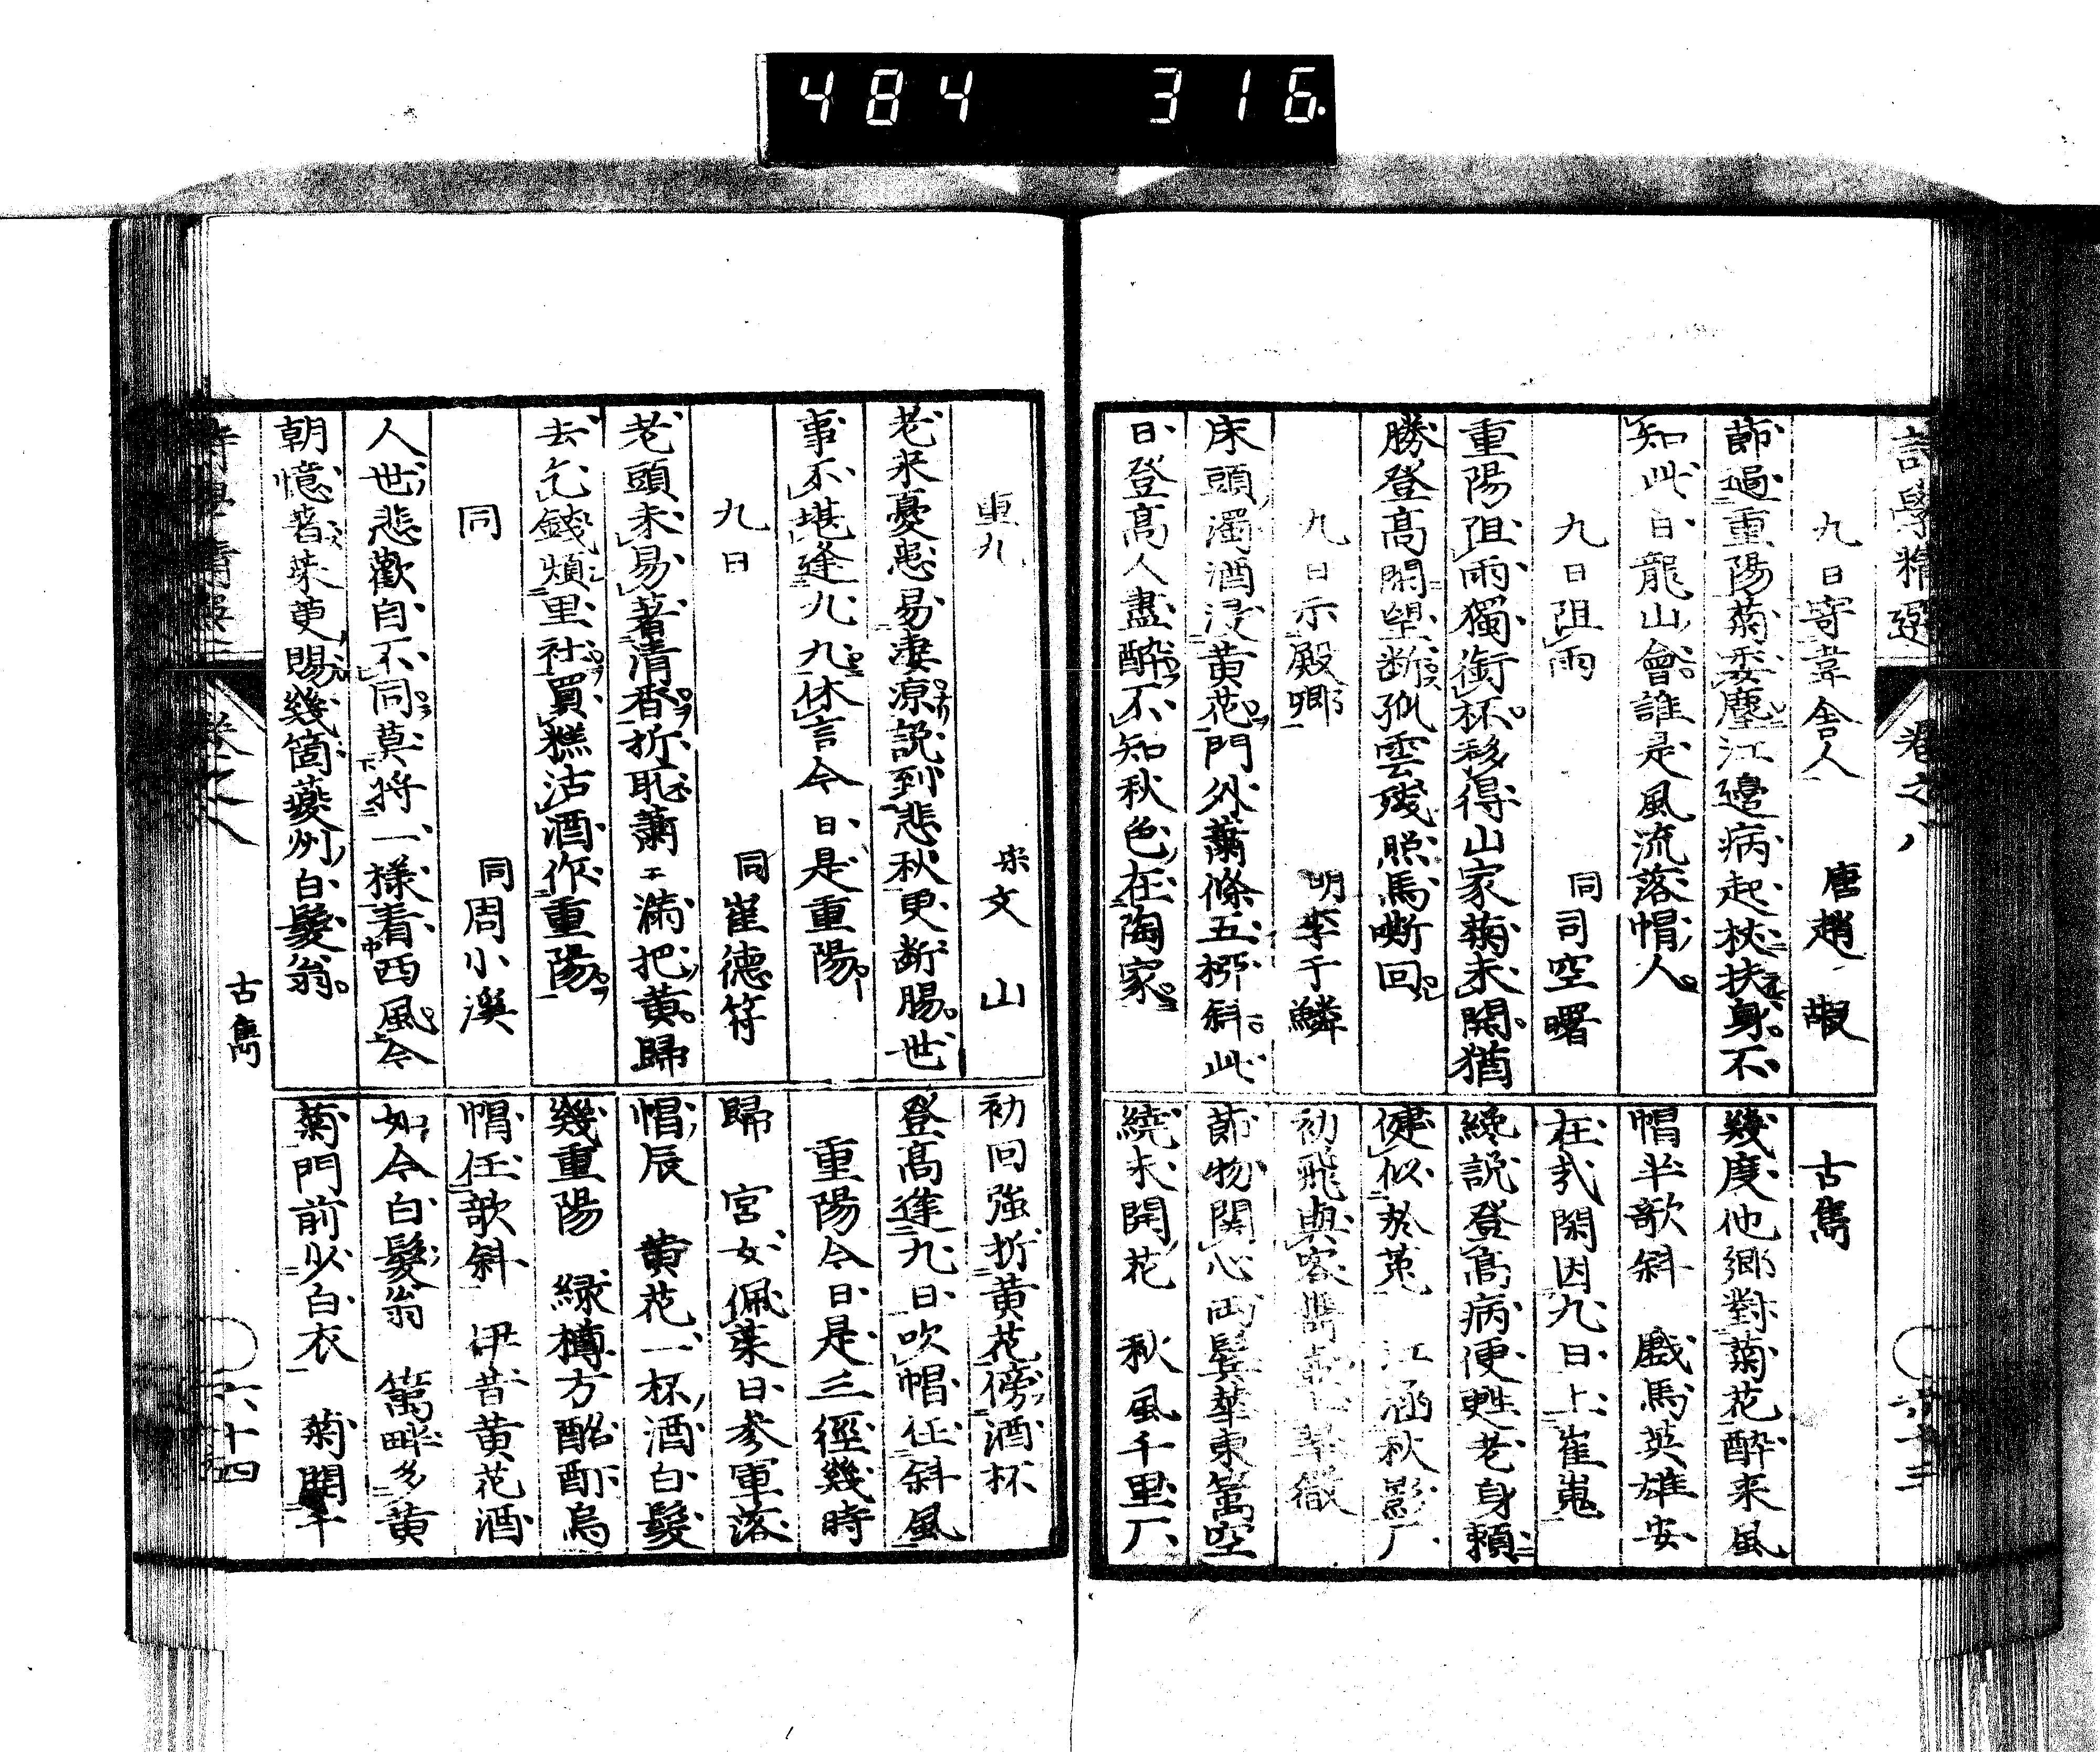 484 316
詩學精選 卷之八
九日寄韋舍人 唐趙嘏
節過重陽菊委塵江邊病起杖扶身不
知此日龍山會誰是風流落帽人
九日阻雨 同司空曙
重陽阻雨獨銜杯移得山家菊未開猶
勝登高閑望断孤雲殘照馬嘶回
九日示殿卿 明李于鱗
床頭濁酒浸黄花門外蕭條五栁斜此
日登高人盡醉不知秋色在陶家
古雋
幾度他郷對菊花醉来風
帽半欹斜 戯馬英雄安
在哉閑因九日上崔嵬
纔説登高病便甦老身頼
健似於菟 江涵秋影厂
初飛與客
節物関心両鬢華東篱空
繞未開花 秋風千里厂
重九 宋文山
老来憂患易凄凉説到悲秋更断腸世
事不堪逢九九休言今日是重陽
九日 同崔德符
老頭未易著清香折耻蕭〻滿把黄歸
去乞錢煩里社買糕沽酒作重陽
同 同周小溪
人世悲歡自不同莫将一樣看西風今
朝憶着茱萸賜幾箇夔州白髮翁
古雋
初回強折黄花傍酒杯
登高逢九日吹帽任斜風
重陽今日是三徑幾時
歸 宮女佩茱日参軍落
帽辰 黄花一杯酒白髮
幾重陽 緑樽方酩酊烏
帽任欹斜 伊昔黄花酒
如今白髮翁 篱畔多黄
菊門前少白衣 菊開
卷之八
六十四